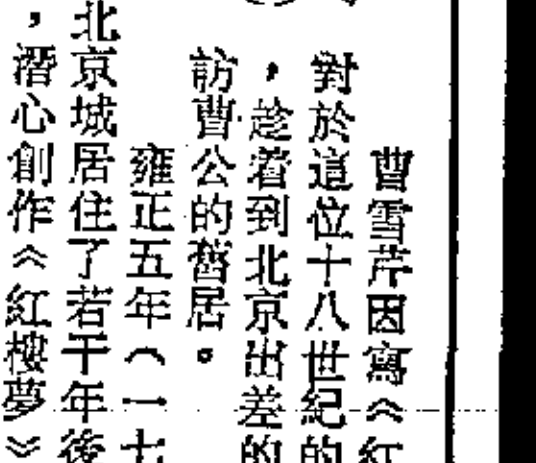 曹雪芹因寫《紅
對於這位十八世紀的
，趁着到北京出差的
訪曹公的舊居。
雍正五年（一七
北京城居住了若干年後
，潛心創作《紅樓夢》